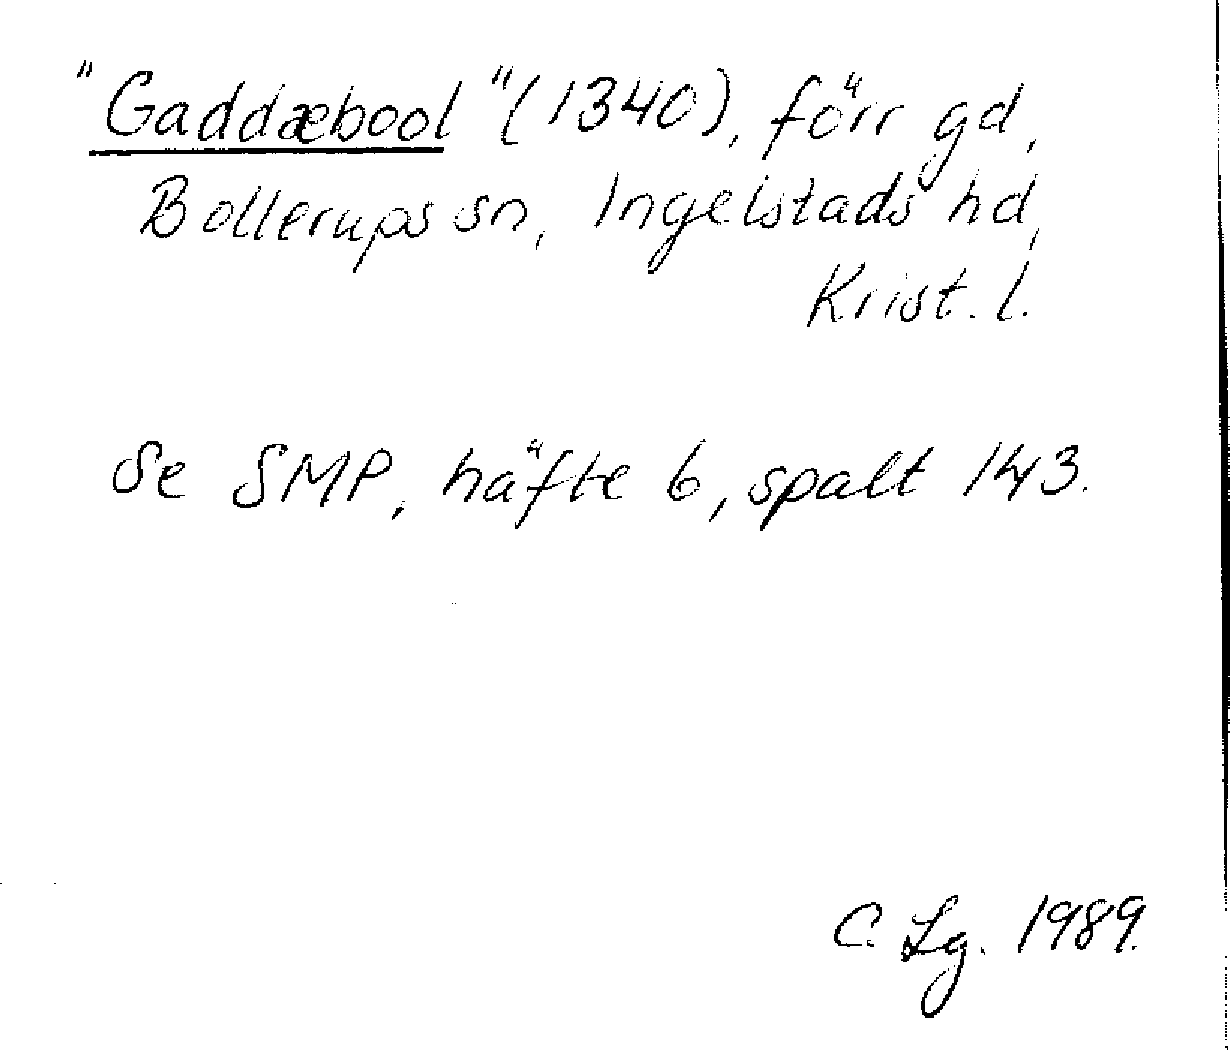 "Gaddæbool" (1340), förr gd,
Bollerups sn, Ingelstads hd,
Krist. l.
Se SMP, häfte 6, spalt 143.
C. Lg. 1989.